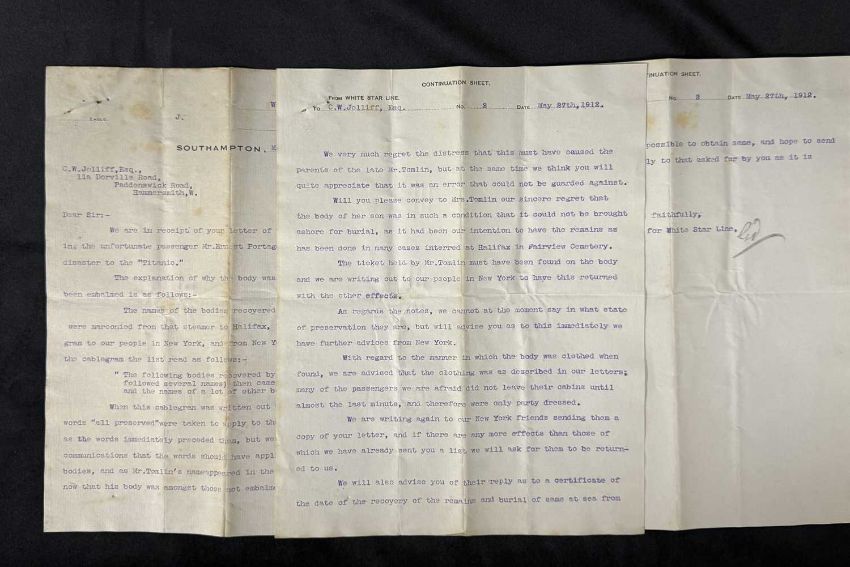 J.
W
SOUTHAMPTON, M
C.W.Jolliff,Esq.,
11a Dorville Road,
Paddenswick Road,
Hammersmith,W.
Dear Sir:-
We are in receipt of your letter of
ing the unfortunate passenger Mr.Ernest Portag
disaster to the "Titanic."
The explanation of why the body was
been embalmed is as follows:-
The names of the bodies recovered
were marconied from that steamer to Halifax,
gram to our people in New York, and from New Y
the cablegram the list read as follows:-
" The following bodies recovered by
followed several names) then came
and the names of a lot of other b
When this cablegram was written out
words "all preserved"were taken to apply to th
as the words immediately preceded them, but we
communications that the words should have appl
bodies, and as Mr.Tomlin's nameappeared in the
now that his body was amongst those not embalme
CONTINUATION SHEET.
FROM WHITE STAR LINE.
To C.W.Jolliff, Esq. No. 2 DATE May 27th, 1912.
We very much regret the distress that this must have caused the
parents of the late Mr.Tomlin, but at the same time we think you will
quite appreciate that it was an error that could not be guarded against.
Will you please convey to Mrs.Tomlin our sincere regret that
the body of her son was in such a condition that it could not be brought
ashore for burial, as it had been our intention to have the remains as
has been done in many cases interred at Halifax in Fairview Cemetery.
The ticket held by Mr.Tomlin must have been found on the body
and we are writing out to our people in New York to have this returned
with the other effects.
As regards the notes, we cannot at the moment say in what state
of preservation they are, but will advise you as to this immediately we
have further advices from New York.
With regard to the manner in which the body was clothed when
found, we are advised that the clothing was as described in our letters;
many of the passengers we are afraid did not leave their cabins until
almost the last minute, and therefore were only party dressed.
We are writing again to our New York friends sending them a
copy of your letter, and if there are any more effects than those of
which we have already sent you a list we will ask for them to be return-
ed to us.
We will also advise you of their reply as to a certificate of
the date of the recovery of the remains and burial of same at sea from
INUATION SHEET.
No. 3 DATE May 27th, 1912.
possible to obtain same, and hope to send
ly to that asked for by you as it is
faithfully,
for White Star Line.